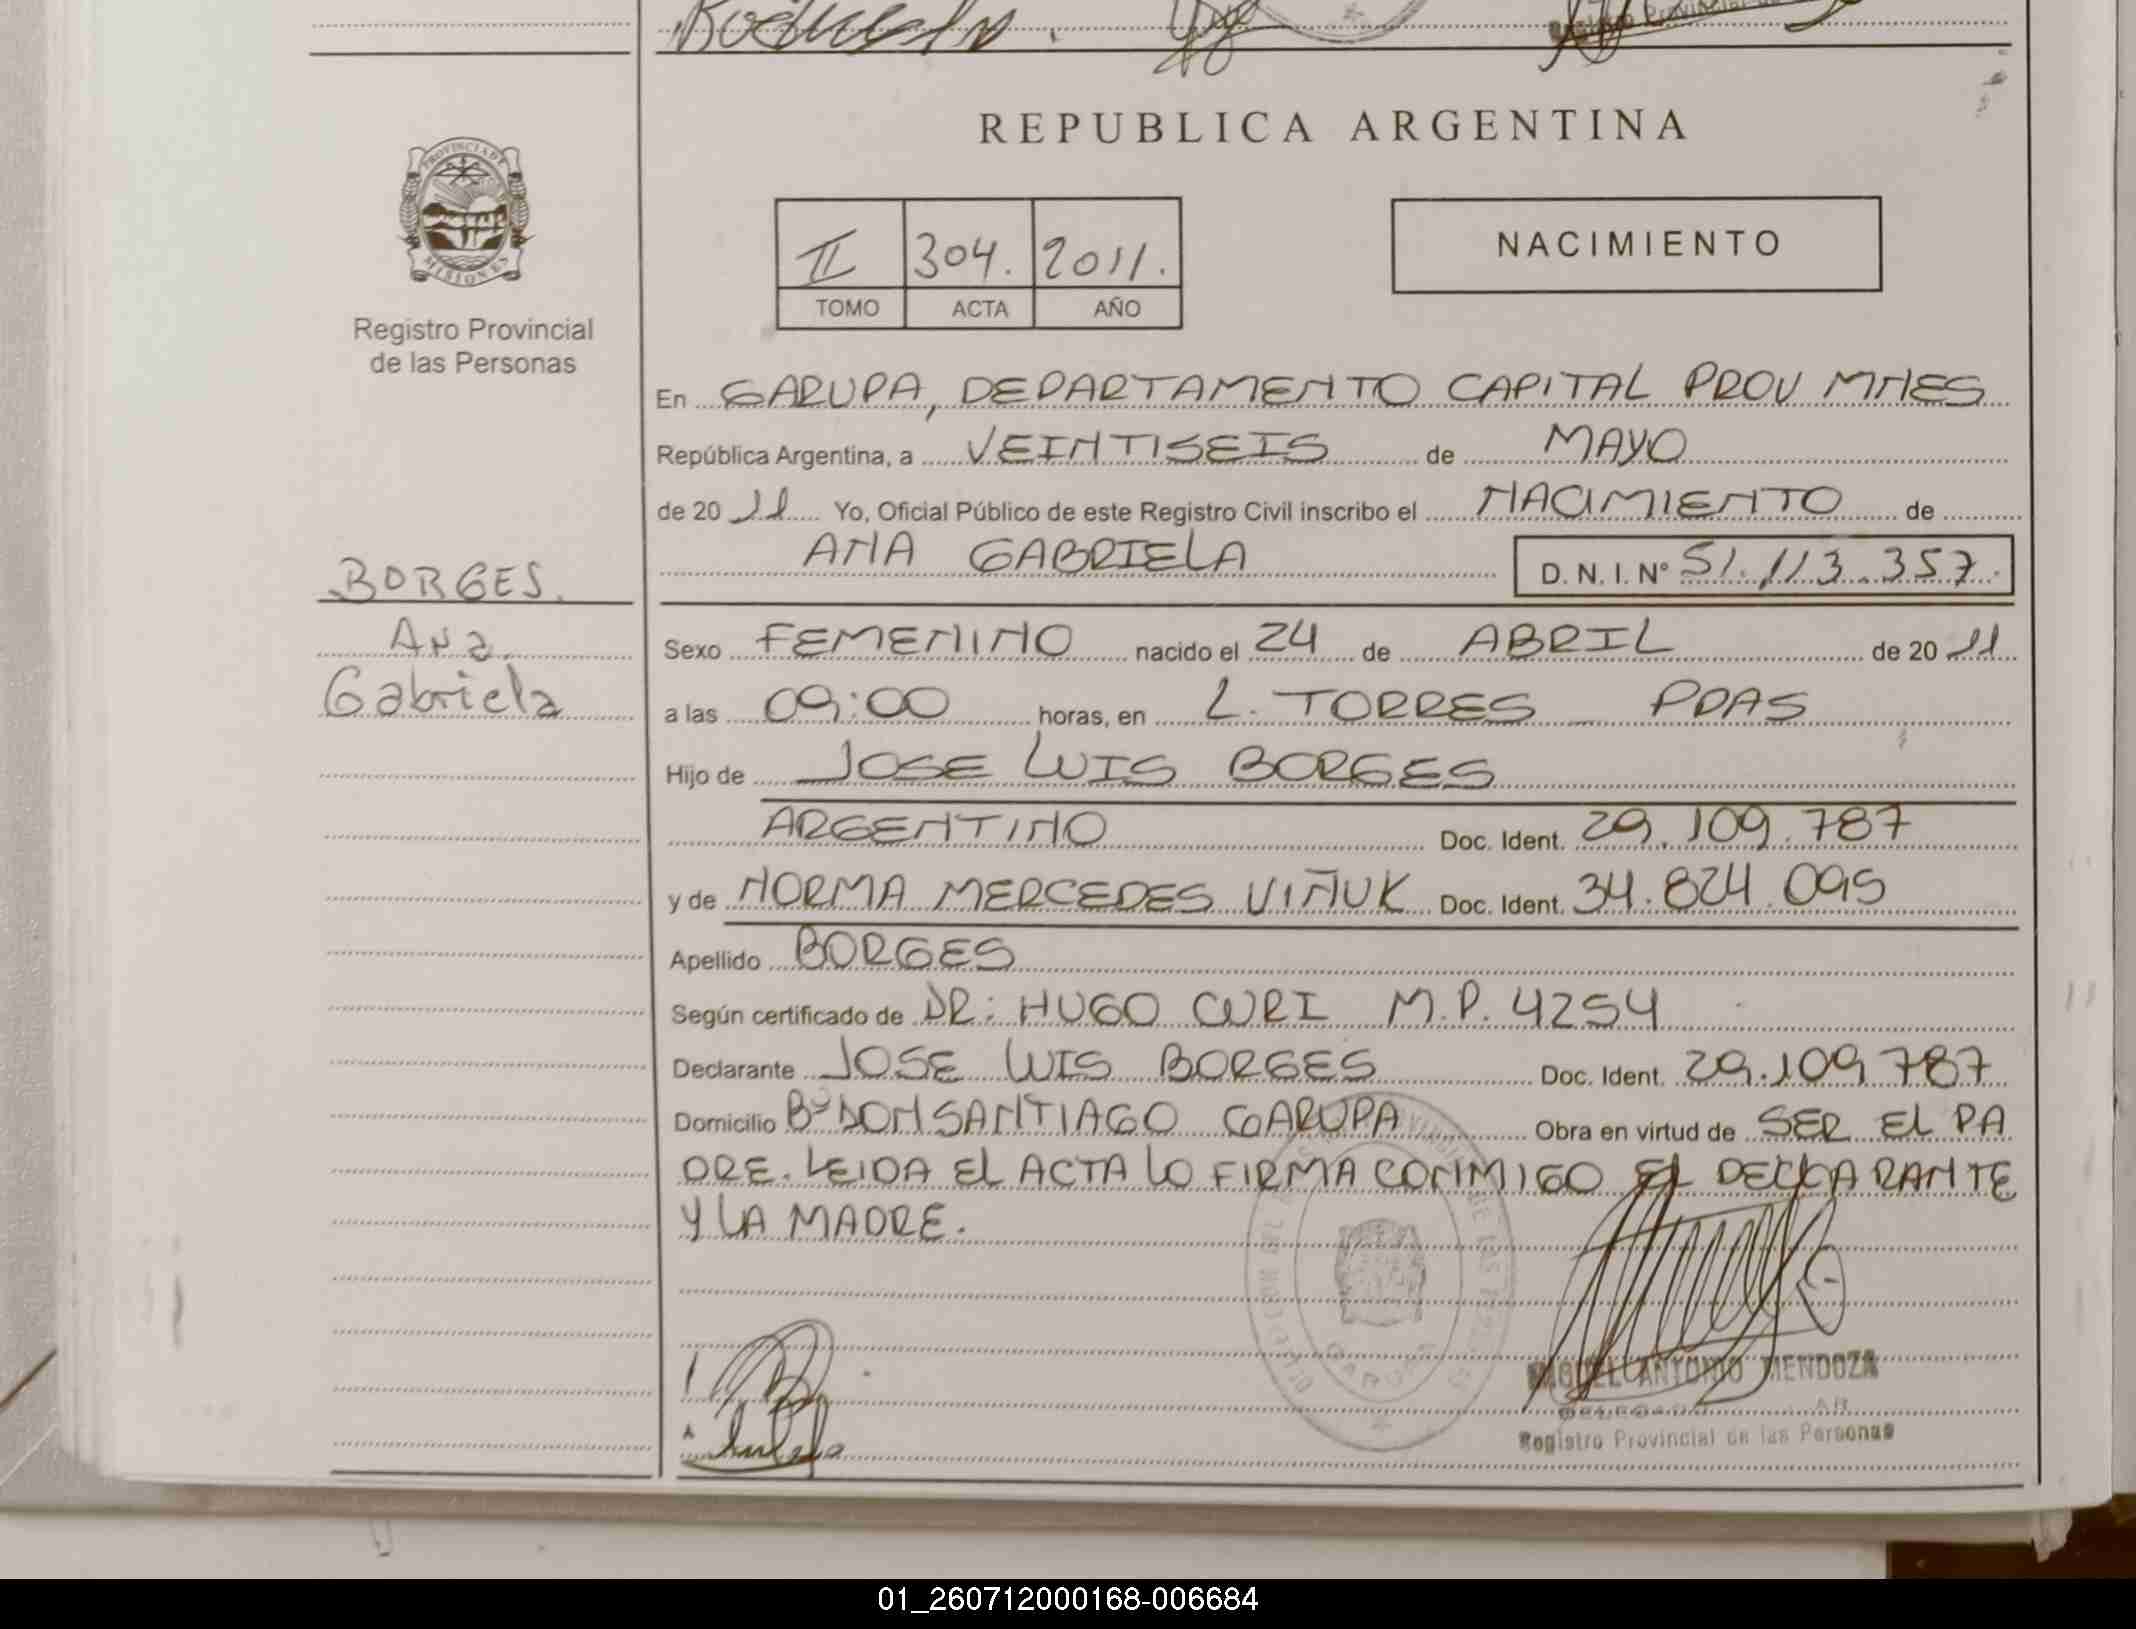 REPUBLICA ARGENTINA
PROVINCIA DE MISIONES
Registro Provincial
de las Personas
II 304. 2011.
TOMO ACTA AÑO
NACIMIENTO
En GARUPA, DEPARTAMENTO CAPITAL PROV MNES
República Argentina, a VEINTISEIS de MAYO
de 20 11 Yo, Oficial Público de este Registro Civil inscribo el NACIMIENTO de
ANA GABRIELA D. N. I. Nº 51.113.357.
BORGES.
Ana
Gabriela
Sexo FEMENINO nacido el 24 de ABRIL de 20 11
a las 09:00 horas, en L. TORRES PDAS
Hijo de JOSE LUIS BORGES
ARGENTINO Doc. Ident. 29.109.787
y de NORMA MERCEDES VIÑUK Doc. Ident. 34.824.095
Apellido BORGES
Según certificado de DR: HUGO CURI M.P. 4254
Declarante JOSE LUIS BORGES Doc. Ident. 29.109.787
Domicilio Bº DON SANTIAGO GARUPA Obra en virtud de SER EL PA
DRE. LEIDA EL ACTA LO FIRMA CONMIGO EL DECLARANTE
Y LA MADRE.
MIGUEL ANTONIO MENDOZA
Registro Provincial de las Personas
01_260712000168-006684